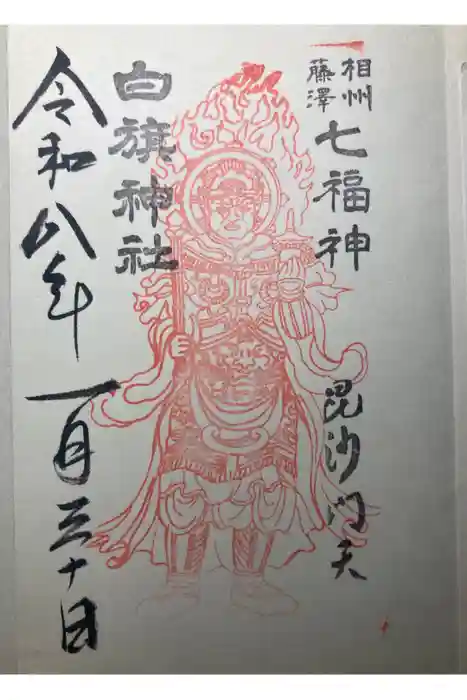 相州
藤澤
七福神
毘沙門天
白旗神社
令和八年
一月三十日